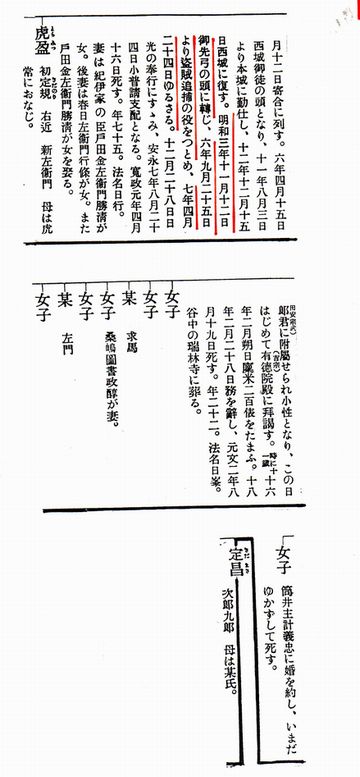 月十二日寄合に列す。六年四月十五日
西城御徒の頭となり、十一年八月三日
より本城に勤仕し、十二年十二月十五
日西城に復す。明和三年十一月十二日
御先弓の頭に轉じ、六年九月二十五日
より盜賊追捕の役をつとめ、七年四月
二十四日ゆるさる。十二月二十八日日
光の奉行にすゝみ、安永七年八月二十
四日小普請支配となる。寬政元年四月
十六日死す。年七十五。法名日行。
妻は紀伊家の臣戶田金左衞門勝淸が
女。後妻は春日左衞門行條が女。また
戶田金左衞門勝淸が女を娶る。
虎盈 初定規 右近 新左衞門 母は虎
常におなじ。
郞君に附屬せられ小性となり、この日
はじめて有德院殿に拜謁す。時に十一歲 十六
年二月朔日廩米二百俵をたまふ。十八
年二月二十八日務を辭し、元文二年八
月十九日死す。年二十二。法名日峯。
谷中の瑞林寺に葬る。
女子
女子
某 求馬
女子 桑嶋圖書政醇が妻。
女子
某 左門
女子
女子 筒井主計義忠に婚を約し、いまだ
ゆかずして死す。
定昌 さだまさ
次郞九郞 母は某氏。